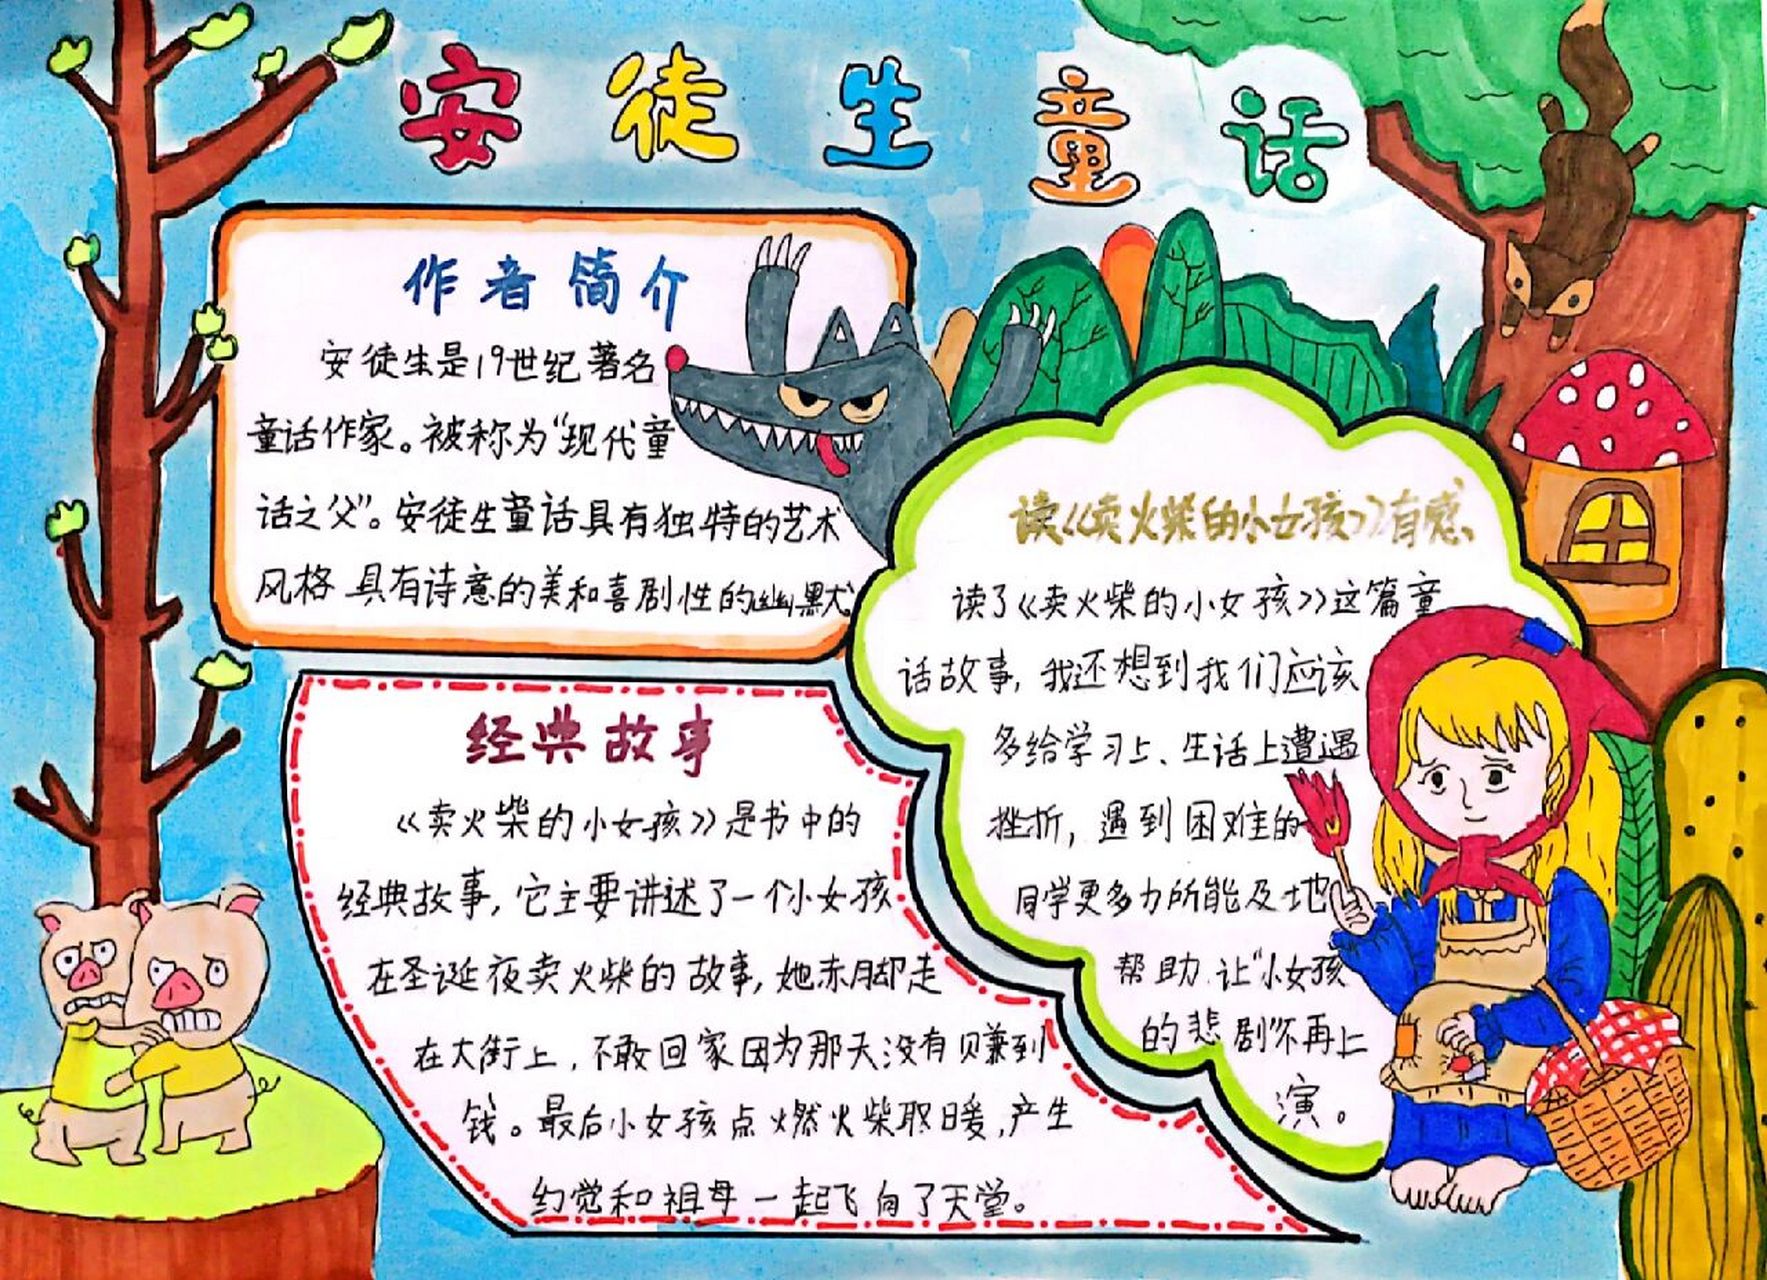 安徒生童话
作者简介
安徒生是19世纪著名
童话作家。被称为“现代童
话之父”。安徒生童话具有独特的艺术
风格具有诗意的美和喜剧性的幽默
经典故事
《卖火柴的小女孩》是书中的
经典故事,它主要讲述了一个小女孩
在圣诞夜卖火柴的故事,她赤脚走
在大街上,不敢回家因为那天没有赚到
钱。最后小女孩点燃火柴取暖,产生
幻觉和祖母一起飞向了天堂。
读《卖火柴的小女孩》有感
读了《卖火柴的小女孩》这篇童
话故事,我还想到我们应该
多给学习上、生活上遭遇
挫折,遇到困难的
同学更多力所能及地
帮助.让“小女孩
的悲剧”不再上
演。